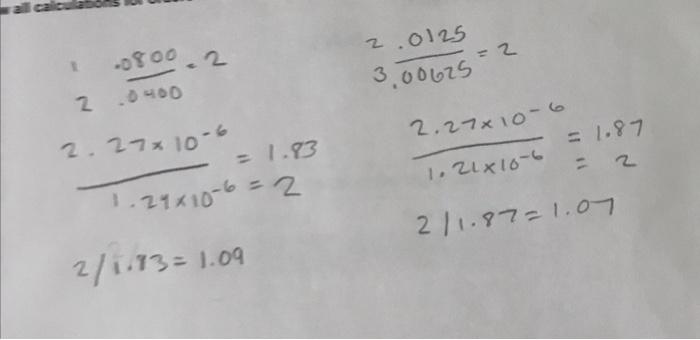 all calculations for
1 .0800 = 2
2 .0400
2.27 x 10⁻⁶ = 1.83
1.24 x 10⁻⁶ = 2
2/1.83 = 1.09
2 .0125 = 2
3 .00625
2.27 x 10⁻⁶ = 1.87
1.21 x 10⁻⁶ = 2
2/1.87 = 1.07